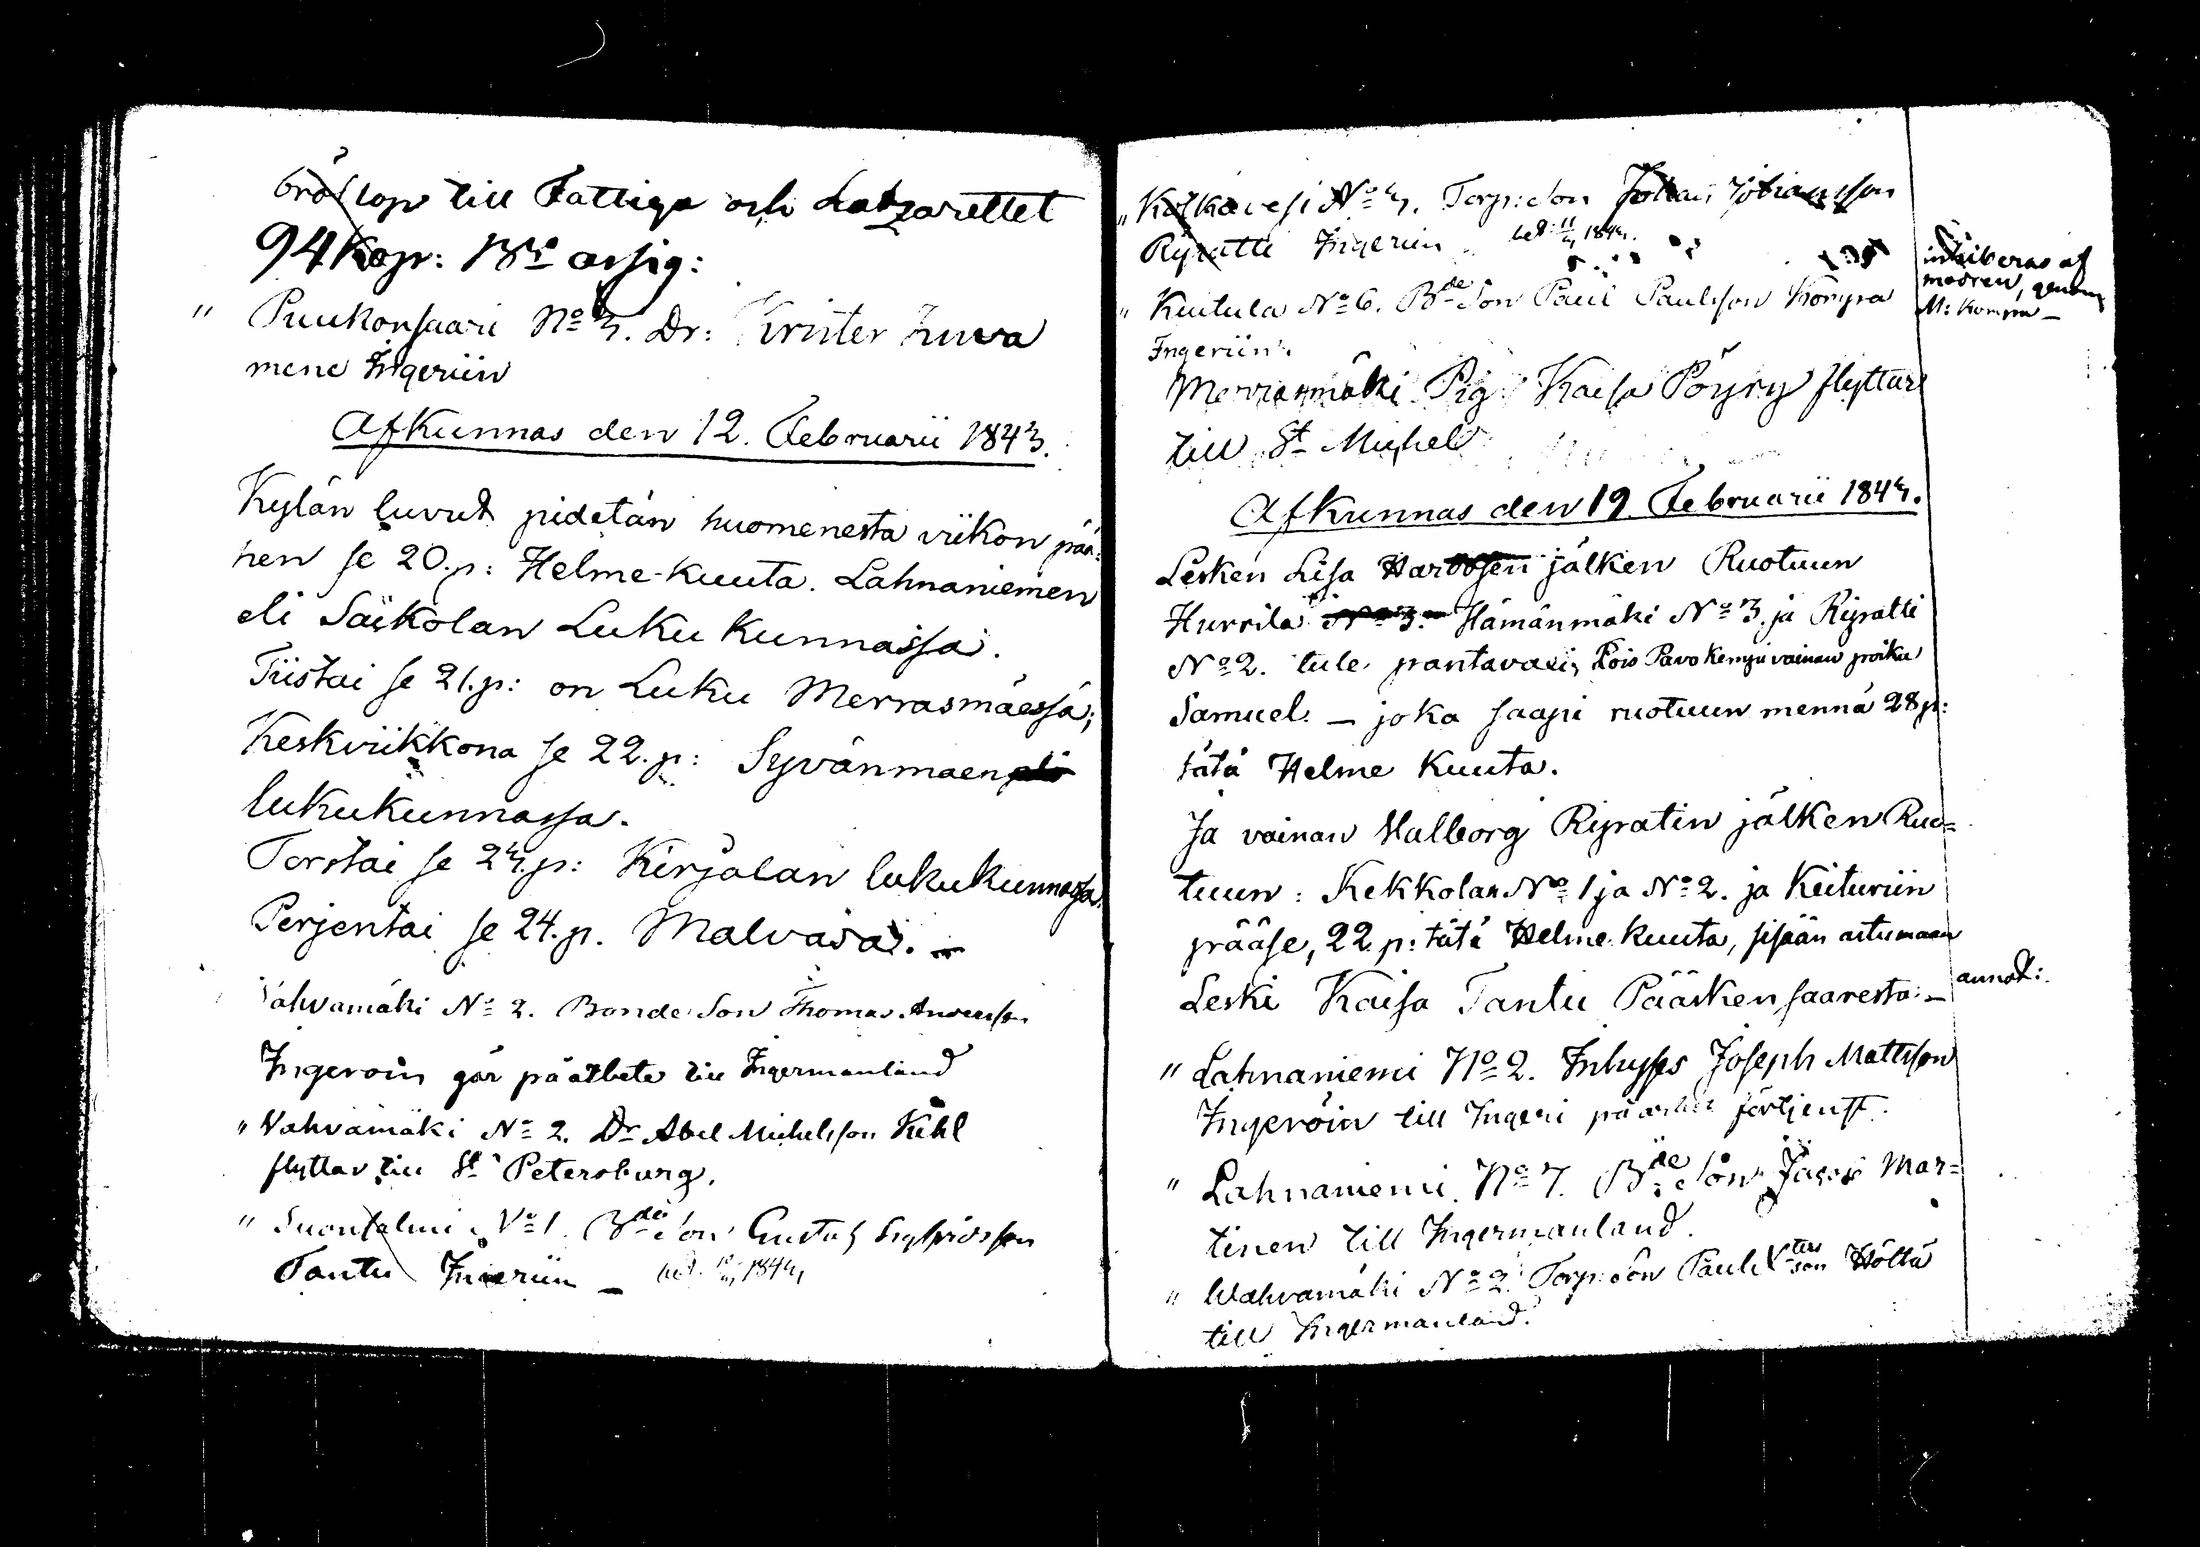 bröllop till Fattiga och Latzarettet
94 Kop: B:ko assig:
" Puukonsaari No 3. Dr: Krister Zuva
mene Ingeriin
Afkunnas den 12. Februarii 1843.
Kylän luvut pidetän huomenesta viikon pää:
hen se 20. p: Helme-kuuta. Lahnaniemen
eli Säikolan Luku kunnassa.
Tiistai se 21. p: on Luku Merrasmäessä;
Keskviikkona se 22. p: Syvänmaen
lukukunnassa.
Torstai se 23. p: Kirjalan lukukunnassa.
Perjentai se 24. p. Malvasa. —
Vahvamäki No 2. Bonde Son Thomas Andersson
Ingeroin går på arbete till Ingermanland
" Vahvamäki No 2. Dr Abel Michelsson Kihl
flyttar till St Petersburg.
" Suontalmi No 1. Bde Son Gustaf Sigfridsson
Tantu Ingeriin — 1843
" Kolkavesi No 3. Torp: Son Johan Johansson
Ryratti Ingeriin 1843.
" Kuitula No 6. Bde Son Paul Paulsson Komppa
Ingeriin.
inhiberas af
modren, genom
M: Komppa —
Merrasmäki Pig. Kaisa Pöyry flyttar
till St Michel
Afkunnas den 19 Februarii 1843.
Lesken Lisa Hartosen jälken Ruotuun
Hurrila No 3. Hämänmäki No 3. ja Ripatti
No 2. tule pantavaxi, Lois Pavo Kemppi vainan poika
Samuel. — joka saapi ruotuun mennä 28 p:
tätä Helme Kuuta.
Ja vainan Valborg Ripatin jälken Ruo=
tuun: Kekkolan No 1 ja No 2. ja Keituriin
pääse, 22 p: tätä Helme kuuta, sisään astumaan
Leski Kaisa Tantu Pääskensaaresta: —
annot:
" Lahnaniemi No 2. Inhyses Joseph Mattsson
Ingeröin till Ingeri på arbets förtjenst.
" Lahnaniemi No 7. Bde Son Jacob Mar=
tinen till Ingermanland.
" Wahvamäki No 2. Torp: Son Paul Höltä
till Ingermanland.